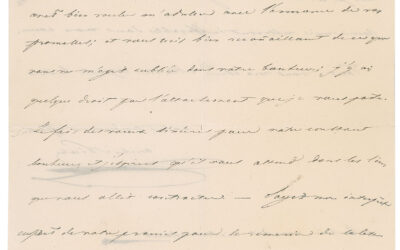 bien voulu m'adresser avec l'annonce de vos
promesses; et vous suis bien reconnaissant de ce que
vous ne m'ayez oublié dans votre bonheur; j'y ai
quelque droit par l'attachement que je vous porte.
Je fais des vœux sincères pour votre constant
bonheur et j'espère qu'il vous attend dans les liens
que vous allez contracter — Soyez mon interprète
auprès de votre promise pour le